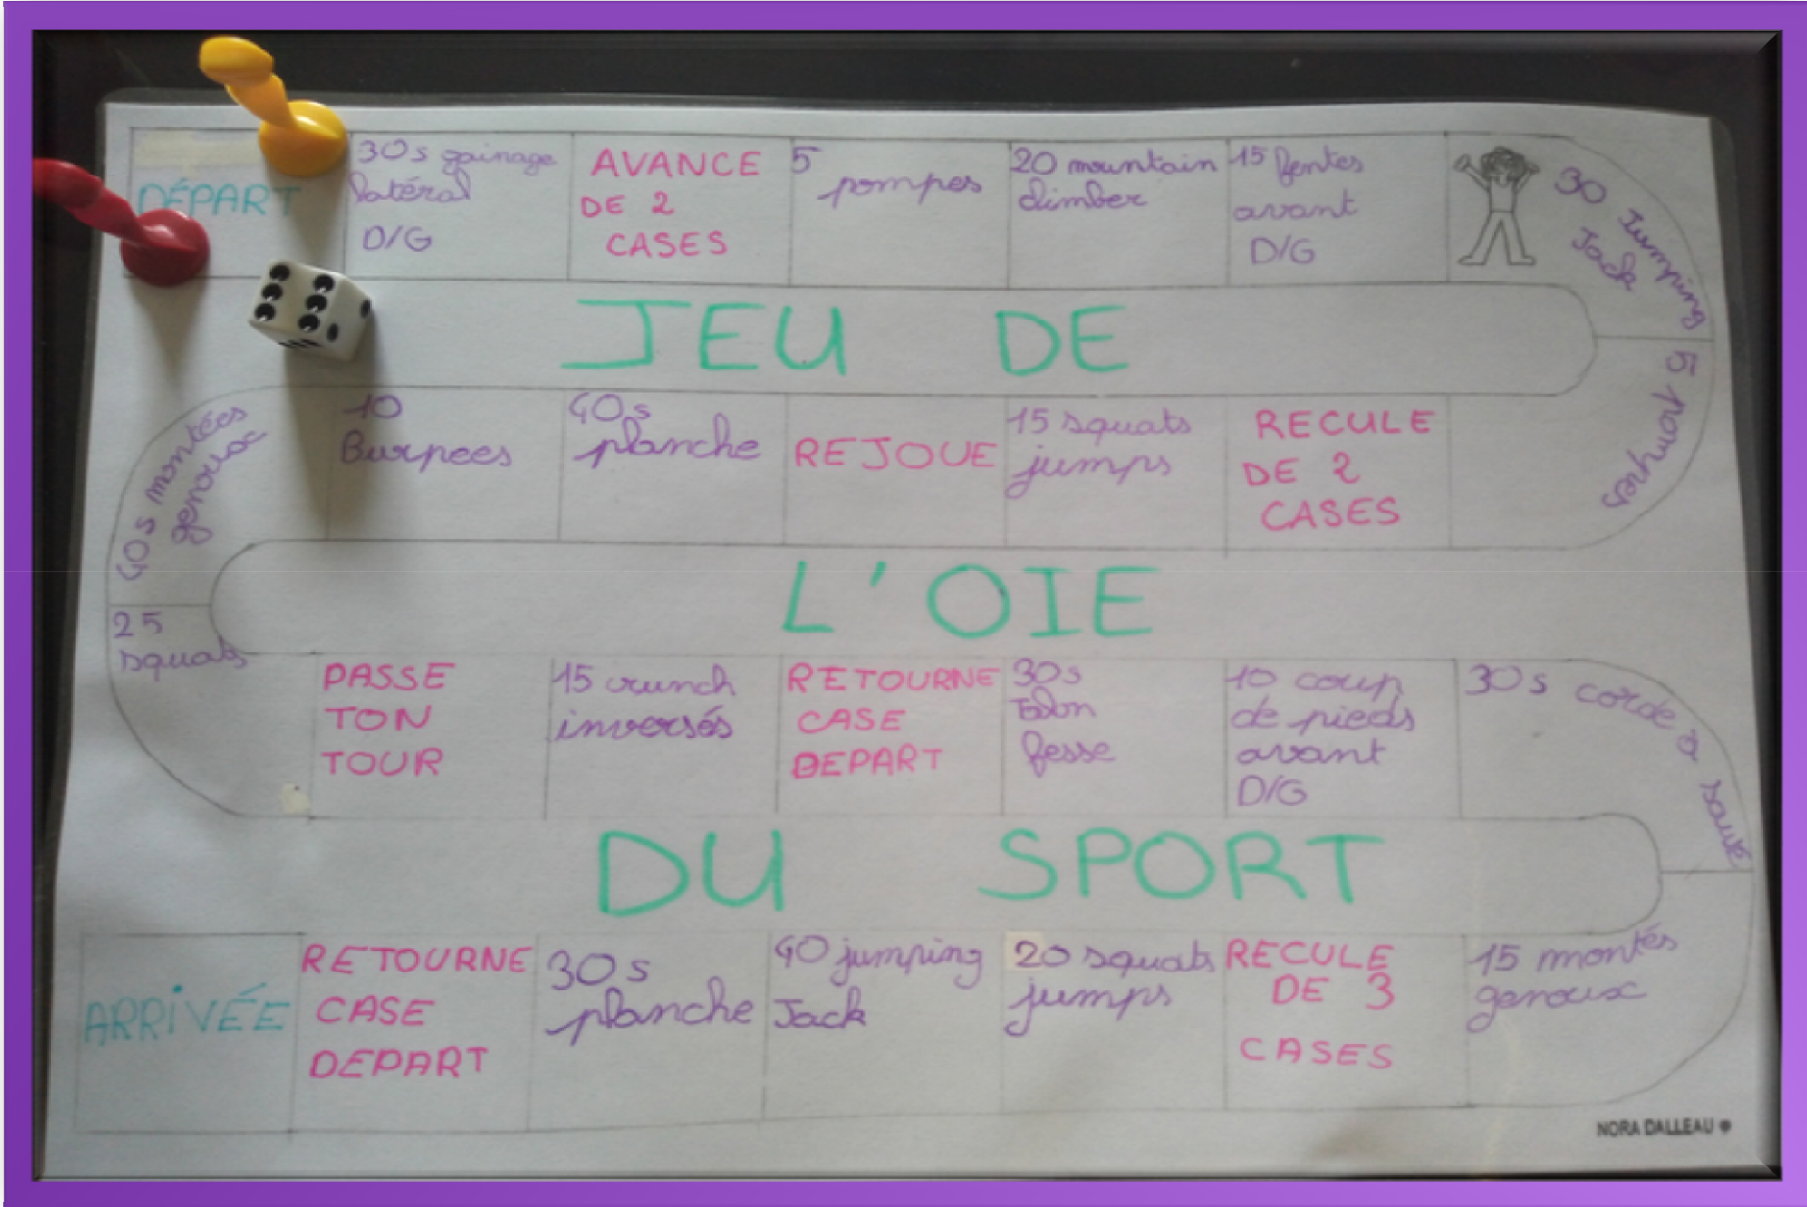 DÉPART
30s gainage
latéral
D/G
AVANCE
DE 2
CASES
5
pompes
20 mountain
climber
15 fentes
avant
D/G
30 Jumping
Jack
JEU DE
5 pompes
RECULE
DE 2
CASES
15 squats
jumps
REJOUE
40s
planche
10
Burpees
40s montées
genoux
L'OIE
25
squats
PASSE
TON
TOUR
15 crunch
inversés
RETOURNE
CASE
DEPART
30s
Talon
fesse
10 coup
de pieds
avant
D/G
30s corde à sauté
DU SPORT
15 montés
genoux
RECULE
DE 3
CASES
20 squats
jumps
40 jumping
Jack
30s
planche
RETOURNE
CASE
DEPART
ARRIVÉE
NORA DALLEAU